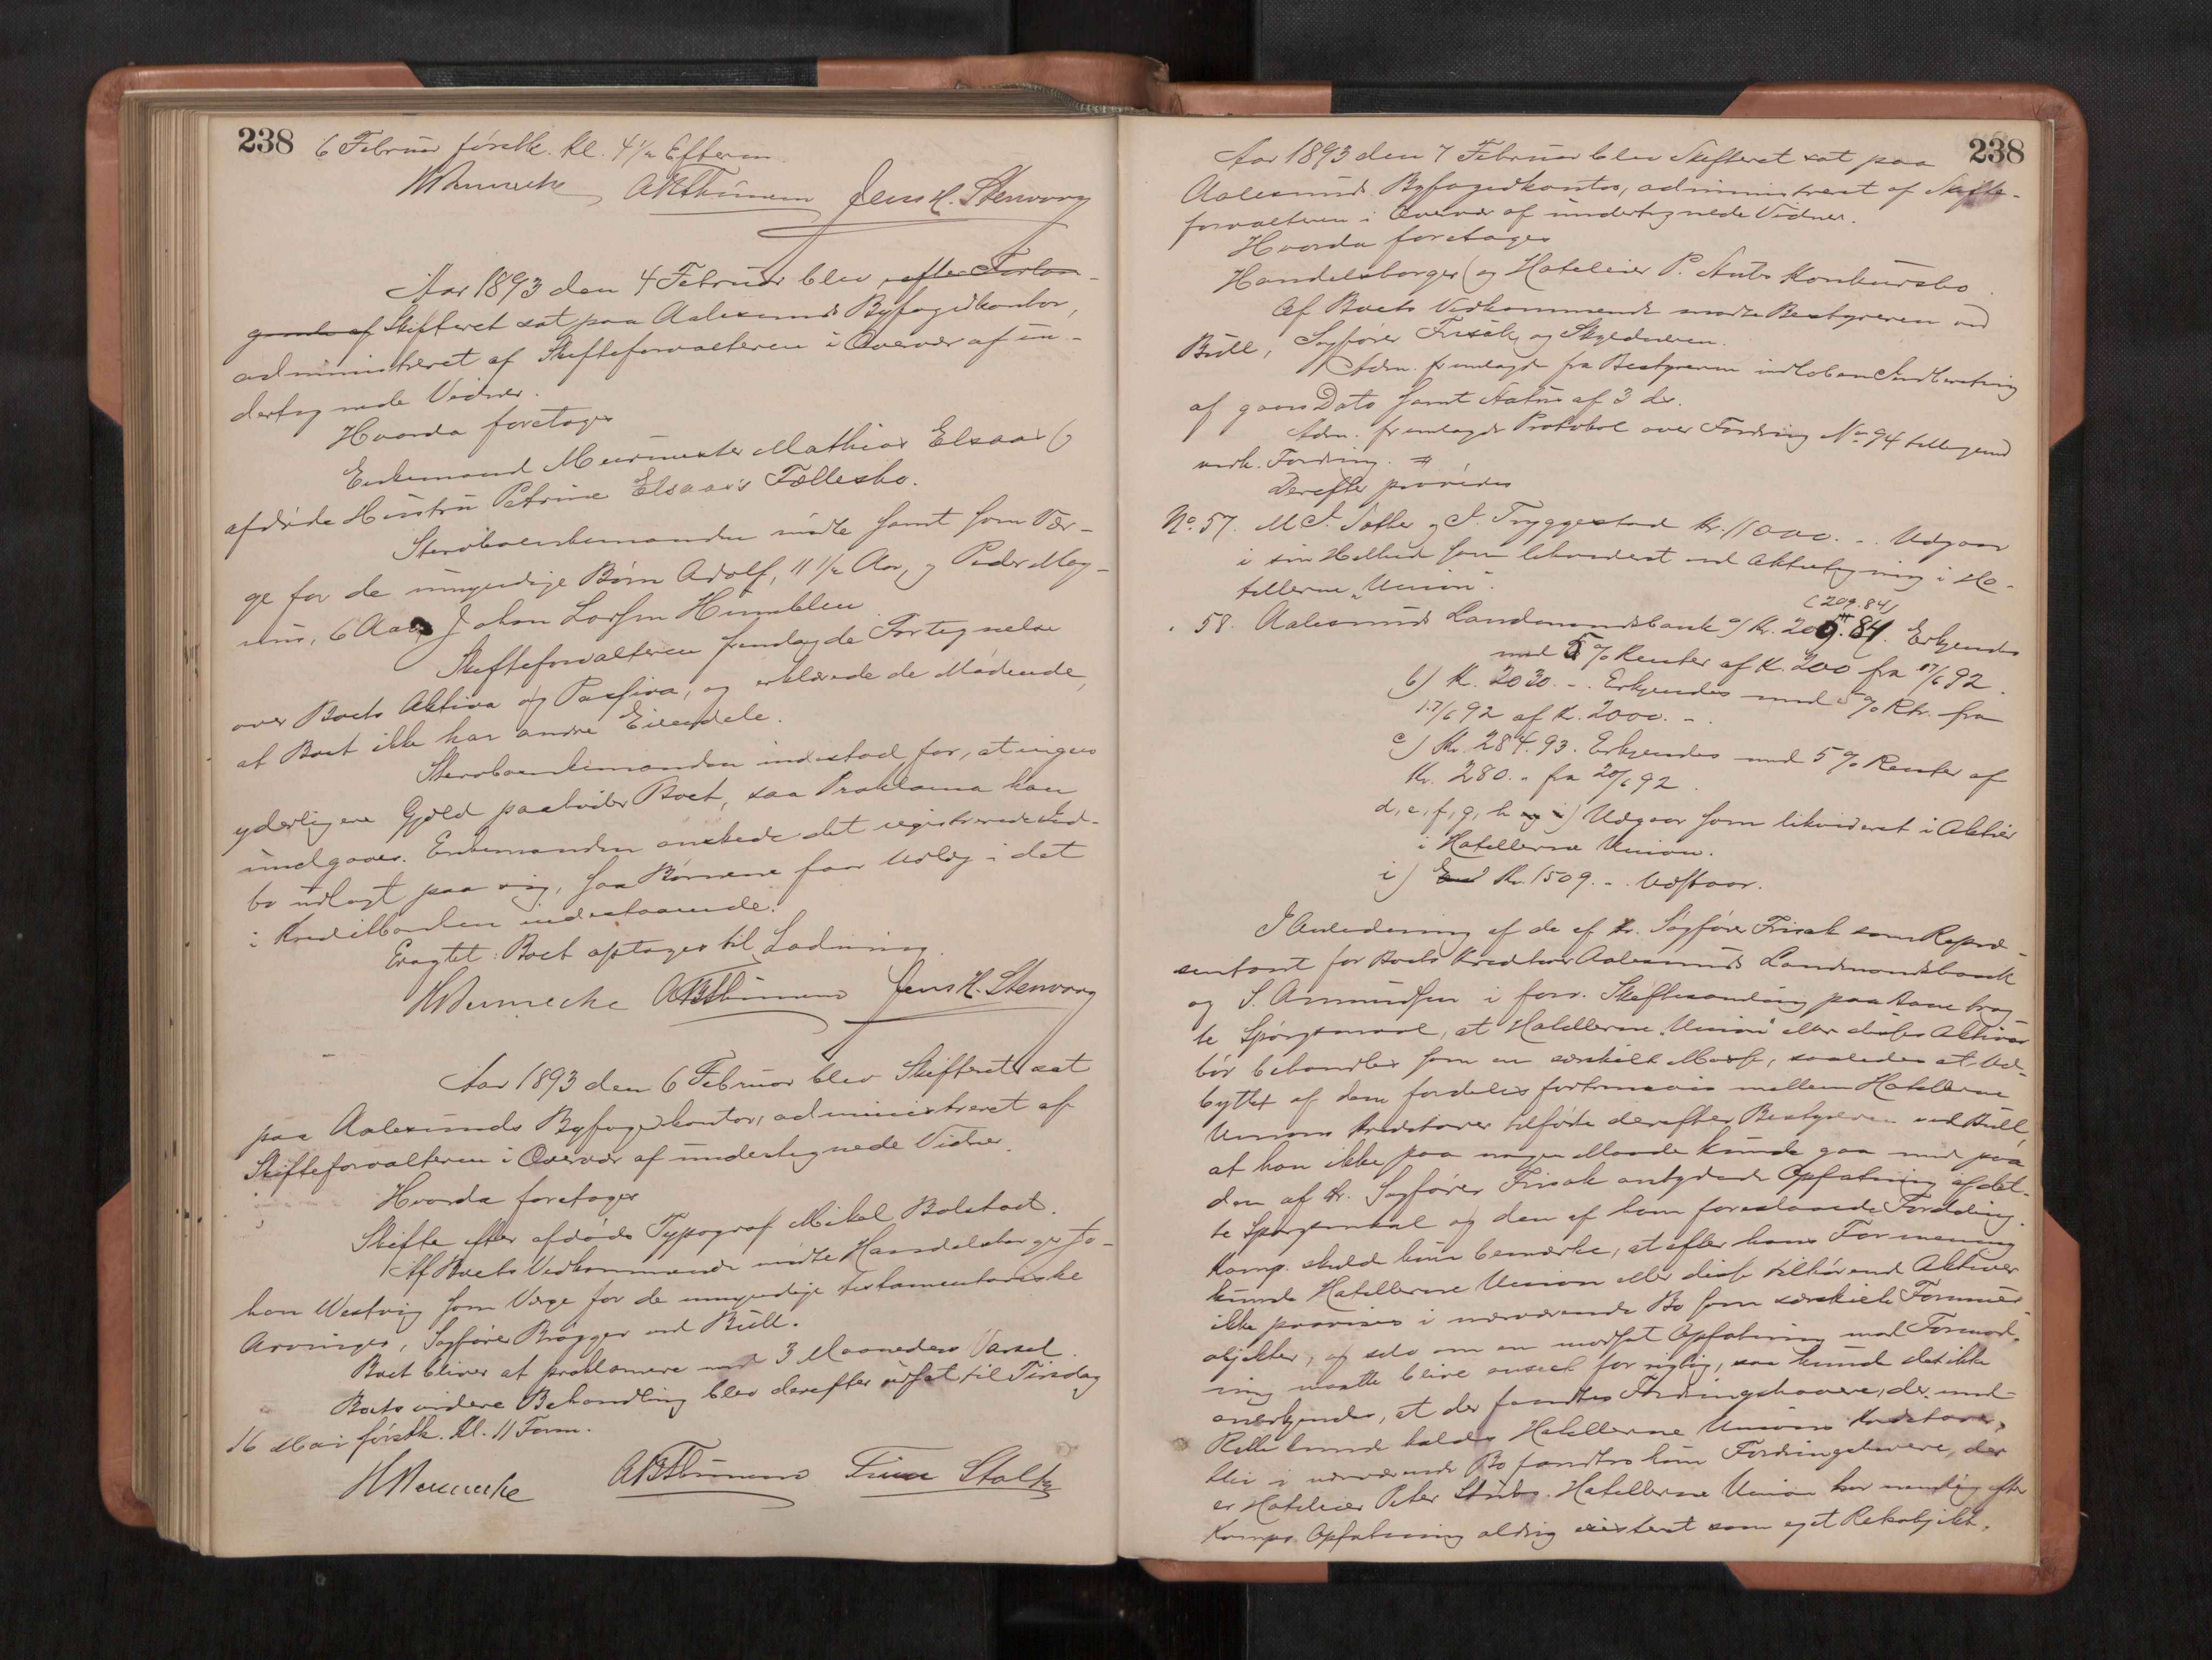 238
6 Februar førstk. Kl. 4 1/2 Efterm.
Jens K. Stenvaag
Aar 1893 den 4 Februar blev efter Forlan-
gende af Skifteret sat paa Aalesunds Byfogedkontor,
administreret af Skifteforvalteren i Overvær af un-
dertegnede Vidner.
Hvorda foretoges
Enkemand Murmester Mathias Elsaas og
afdøde Hustru Petrine Elsaas's Fællesbo.
Stervboenkemanden mødte samt som Vær-
ge for de umyndige Børn Adolf, 11 1/2 Aar, og Peder Mag-
nus, 6 Aar, Johan Larsen Humblen.
Skifteforvalteren fremlagde Fortegnelse
over Boets Aktiva og Passiva, og erklærede de Mødende,
at Boet ikke har andre Eiendele.
Stervboenkemanden indestod for, at ingen
yderligere Gjæld paahviler Boet, saa Proklama kan
undgaaes. Enkemanden ønskede det registrerede Ind-
bo udlagt paa sig, saa Børnene faar Udlæg i det
i Kreditbanken indestaaende.
Eragtet: Boet optages til Slutning.
Jens K. Stenvaag
Aar 1893 den 6 Februar blev Skifteret sat
paa Aalesunds Byfogedkontor, administreret af
Skifteforvalteren i Overvær af undertegnede Vidner.
Hvorda foretoges
Skifte efter afdøde Typograf Mikal Bolstad.
Af Boets Vedkommende mødte Handelsborger Jo-
han Westvig som Værge for de umyndige testamentariske
Arvinger, Sagfører Brøgger ved Bull.
Boet bliver at proklamere med 3 Maaneders Varsel.
Boets videre Behandling blev derefter udsat til Tirsdag
16 Mai førstk. Kl. 11 Form.
238
Aar 1893 den 7 Februar blev Skifteret sat paa
Aalesunds Byfogedkontor, administreret af Skifte-
forvalteren i Overvær af undertegnede Vidner.
Hvorda foretoges
Handelsborger og Hoteleier P. Stubs Konkursbo.
Af Boets Vedkommende mødte Bestyreren ved
Bull, Sagfører Frisak og Skyldneren.
Adm. fremlagde fra Bestyreren indløben Indberetning
af gaars Dato samt Status af 3 ds.
Adm. fremlagde Protokol over Fordring No 94 tilligemed
Fordring.
Derefter prøvedes
No. 57. M. J. Sætter og J. Tryggestad Kr. 11000. - Udgaar
i sin Helhed som likvideret ved Aktietegning i Ho-
tellerne "Union".
(209.84)
" 58. Aalesunds Landmandsbank a) Kr. 209.84. Erkjendes
med 5 % Renter af Kr. 200 fra 17/6 92.
b) Kr. 2030. - . Erkjendes med 5 % Rtr. fra
17/6 92 af Kr. 2000. - .
c) Kr. 284.93. Erkjendes med 5 % Renter af
Kr. 280. - fra 20/6 92.
d, e, f, g, h og i) Udgaar som likvideret i Aktier
i Hotellerne Union.
i) Kr. 1509. - . Udstaar.
I Anledning af de af Hr. Sagfører Frisak som Repræ-
sentant for Boets Kreditor Aalesunds Landmandsbank
og S. Amundsen i forr. Skiftesamling paa Bane brag-
te Spørgsmaal, at Hotellerne "Union" eller disses Aktiver
bør behandles som en særskilt Masse, saaledes at Ud-
byttet af dem fordeles fortrinsvis mellem Hotellerne
Unions Kreditorer tilførte derefter Bestyreren ved Bull,
at han ikke paa nogen Maade kunde gaa med paa
den af Hr. Sagfører Frisak antydede Opfatning af det-
te Spørgsmaal og den af ham foreslaaede Fordeling.
Komp. skulde kun bemærke, at efter hans Formening
kunde Hotellerne Union eller disse tilhørende Aktiver
ikke paavises i nærværende Bo som særskilt Formues-
objekter, og selv om en modsat Opfatning mod Formod-
ning maatte blive anseet for rigtig, saa kunde det ikke
anerkjendes, at der fandtes Fordringshavere, der med
Rette kunde kaldes Hotellerne Unions Kreditorer,
idet i nærværende Bo fandtes kun Fordringshavere, der
er Hoteleier Peter Stubs. Hotellerne Union har nemlig efter
Komps. Opfatning aldrig existeret som eget Retsobjekt,